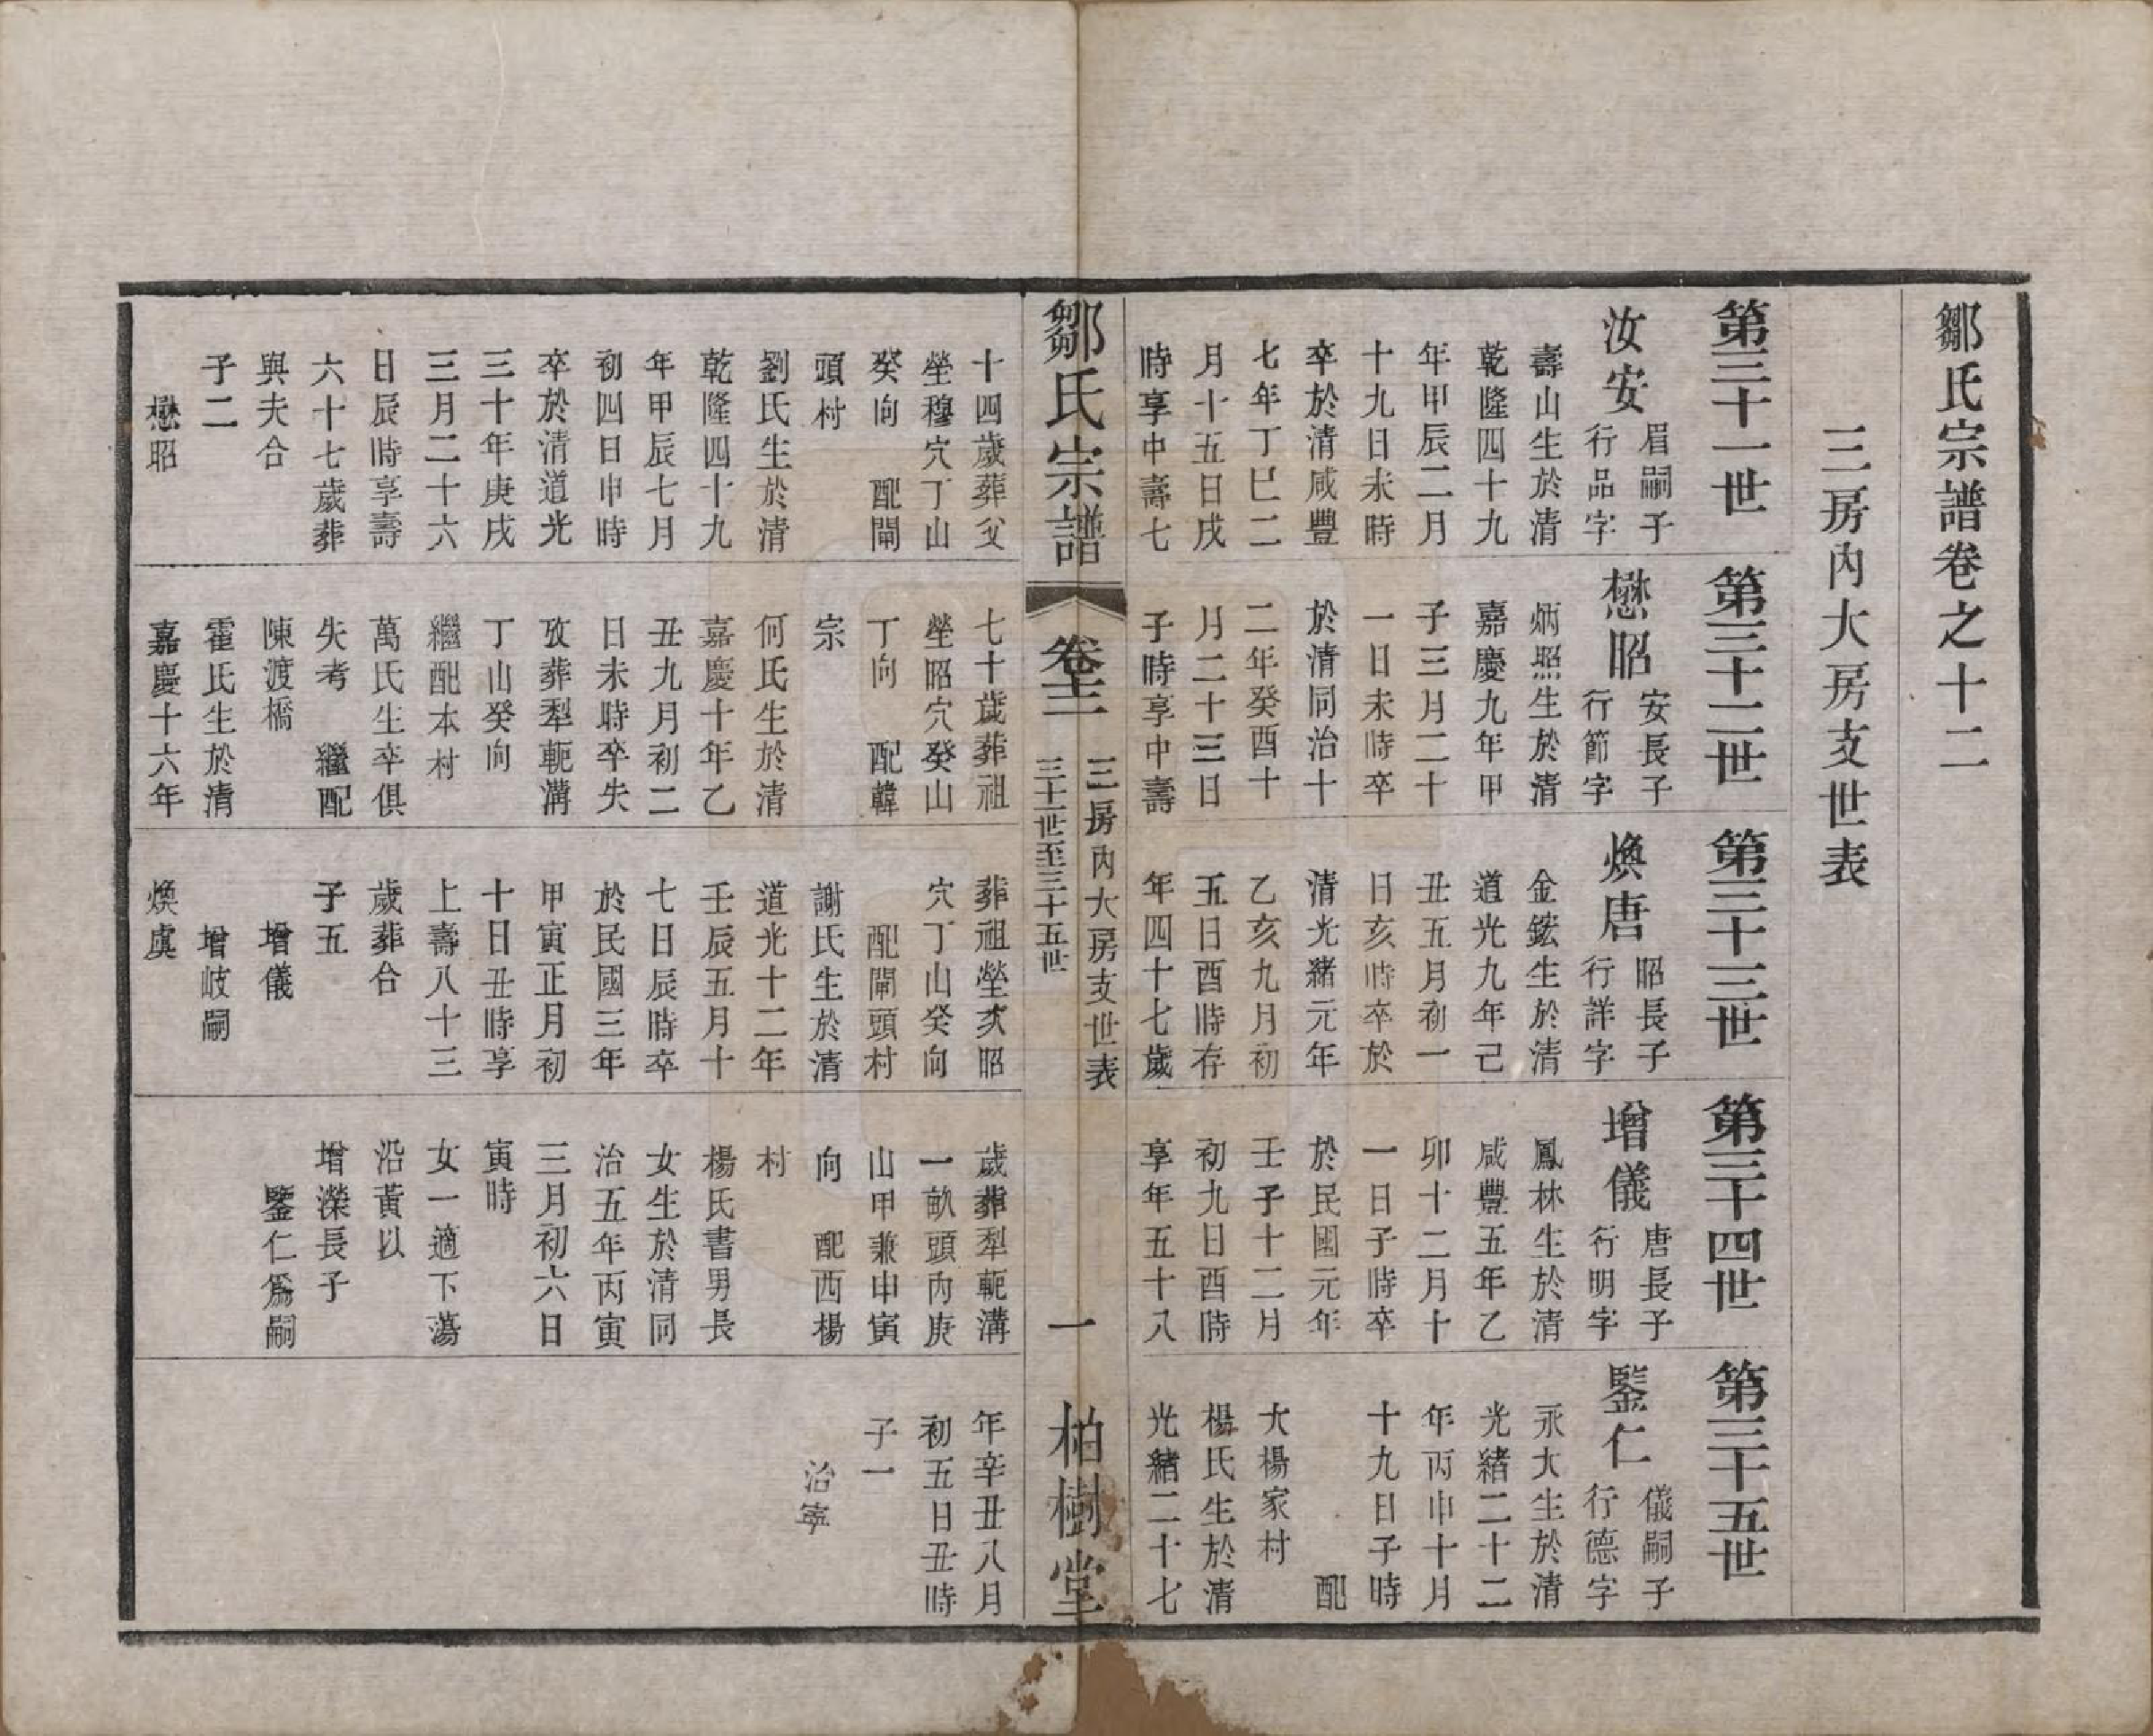 鄒氏宗譜卷之十二
三房內大房支世表
第三十一世
汝安
眉嗣子
行品字
壽山生於清
乾隆四十九
年甲辰二月
十九日未時
卒於清咸豐
七年丁巳二
月十五日戌
時享中壽七
第三十二世
懋昭
安長子
行節字
炳照生於清
嘉慶九年甲
子三月二十
一日未時卒
於清同治十
二年癸酉十
月二十三日
子時享中壽
第三十三世
煥唐
昭長子
行詳字
金鋐生於清
道光九年己
丑五月初一
日亥時卒於
清光緒元年
乙亥九月初
五日酉時存
年四十七歲
第三十四世
增儀
唐長子
行明字
鳳林生於清
咸豐五年乙
卯十二月十
一日子時卒
於民國元年
壬子十二月
初九日酉時
享年五十八
第三十五世
鑒仁
儀嗣子
行德字
永大生於清
光緒二十二
年丙申十月
十九日子時
配
大楊家村
楊氏生於清
光緒二十七
鄒氏宗譜
卷十二
三房內大房支世表
三十一世至三十五世
一
柏樹堂
十四歲葬父
塋穆穴丁山
癸向 配閘
頭村
劉氏生於清
乾隆四十九
年甲辰七月
初四日申時
卒於清道光
三十年庚戌
三月二十六
日辰時享壽
六十七歲葬
與夫合
子二
懋昭
七十歲葬祖
塋昭穴癸山
丁向 配韓
宗
何氏生於清
嘉慶十年乙
丑九月初二
日未時卒失
攷葬犁軛溝
丁山癸向
繼配本村
萬氏生卒俱
失考 繼配
陳渡橋
霍氏生於清
嘉慶十六年
葬祖塋次昭
穴丁山癸向
配閘頭村
謝氏生於清
道光十二年
壬辰五月十
七日辰時卒
於民國三年
甲寅正月初
十日丑時享
上壽八十三
歲葬合
子五
增儀
增岐嗣
煥虞
歲葬犁軛溝
一畝頭內庚
山甲兼申寅
向 配西楊
村
楊氏書男長
女生於清同
治五年丙寅
三月初六日
寅時
女一適下蕩
沿黃以
增濚長子
鑒仁為嗣
年辛丑八月
初五日丑時
子一
治寧